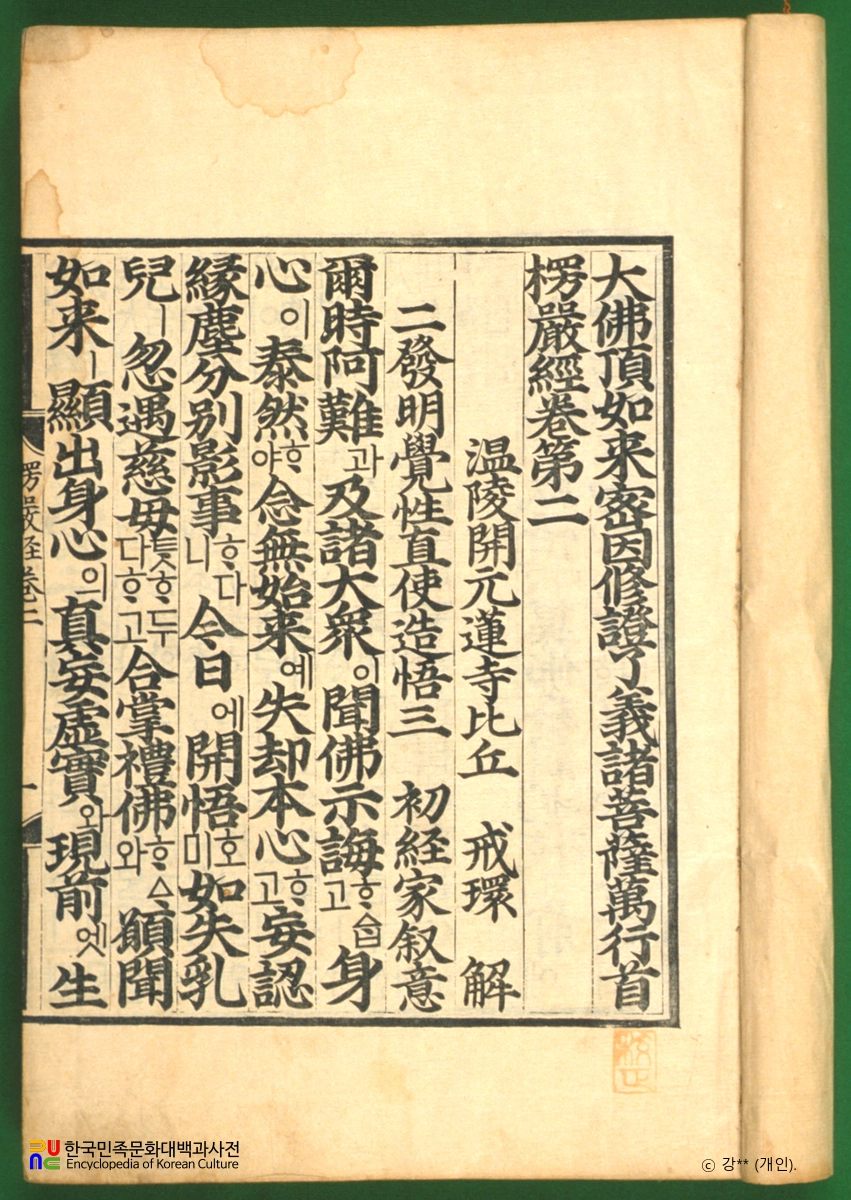 大佛頂如来密因修證了義諸菩薩萬行首
楞嚴經卷第二
温陵開元蓮寺比丘 戒環 解
二發明覺性直使造悟三 初經家叙意
爾時阿難과及諸大衆이聞佛示誨ᄒᆞᅀᆞᆸ고身
心이泰然ᄒᆞ야念無始来예失却本心ᄒᆞ고妄認
緣塵分別影事ᄒᆞ다니今日에開悟호미如失乳
兒ㅣ忽遇慈母ᄐᆞᆺᄒᆞ두다ᄒᆞ고合掌禮佛ᄒᆞᅀᆞ와願聞
如来ㅣ顯出身心의真妄虛實와現前엣生
楞嚴經卷二
한국민족문화대백과사전
Encyclopedia of Korean Culture
ⓒ 강** (개인).